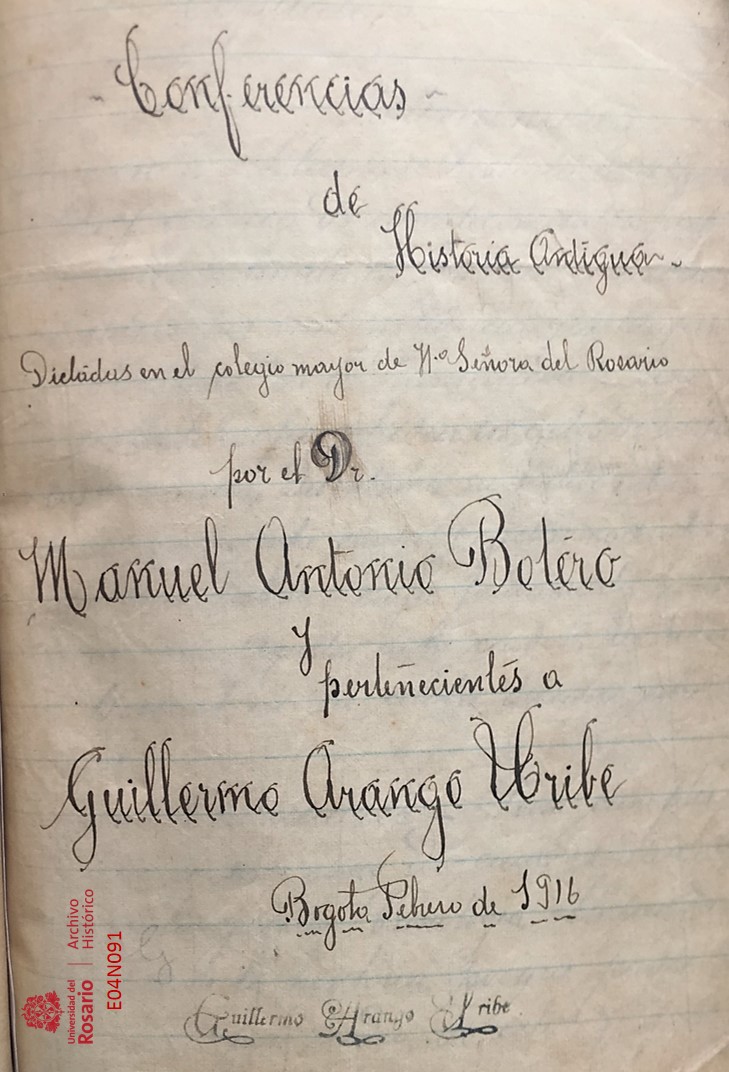 ~ Conferencias ~
de
Historia Antigua ~.
Dictadas en el colegio mayor de N.a Señora del Rosario
por el Dr.
Manuel Antonio Botéro
y
perteñecientés a
Guillermo Arango Uribe
Bogota Febrero de 1916
Guillermo Arango Uribe
Universidad del
Rosario
Archivo
Histórico
E04N091